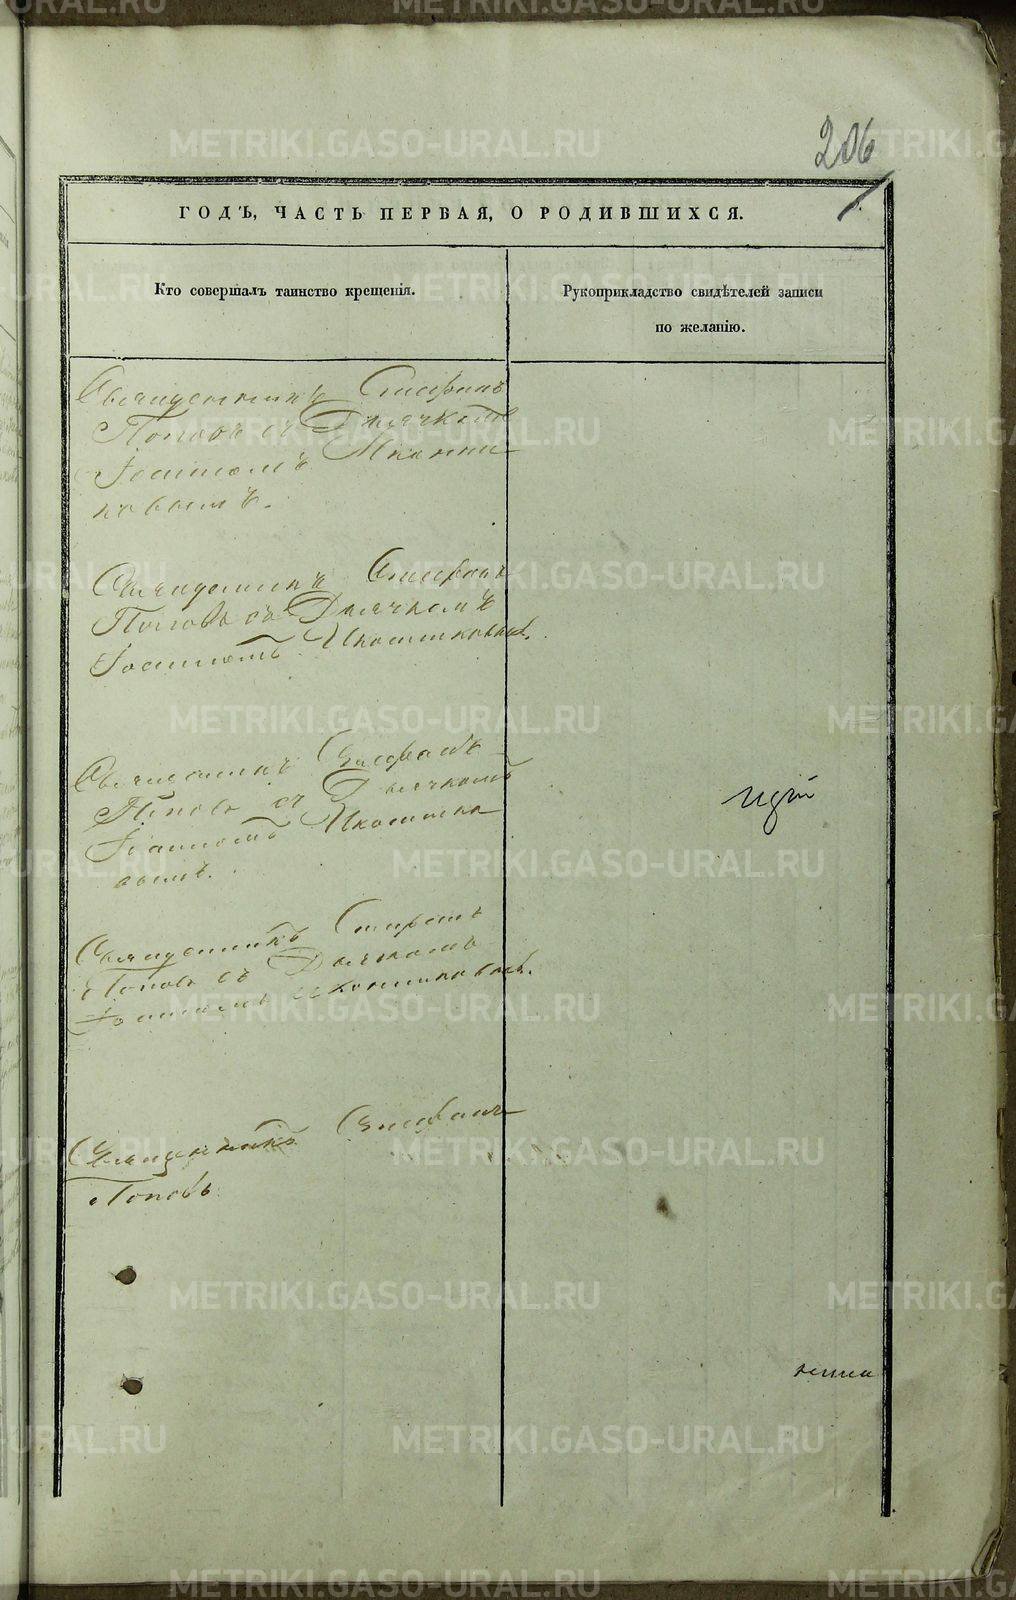 206
ГОДЪ, ЧАСТЬ ПЕРВАЯ, О РОДИВШИХСЯ.
Кто совершалъ таинство крещенія.
Рукоприкладство свидѣтелей записи
по желанію.
Священникъ Стефанъ
Поповъ съ Дьячкомъ
Іоанномъ Иконни
ковымъ.
Священникъ Стефанъ
Поповъ съ Дьячкомъ
Іоанномъ Иконниковымъ.
Священникъ Стефанъ
Поповъ съ Дьячкомъ
Іоанномъ Иконнико
вымъ.
Священникъ Стефанъ
Поповъ съ Дьячкомъ
Іоанномъ Иконниковымъ.
Священникъ Стефанъ
Поповъ
METRIKI.GASO-URAL.RU